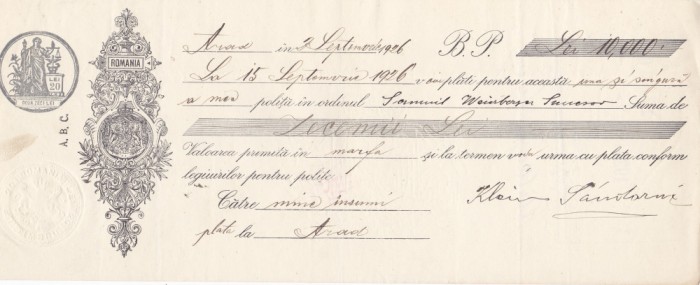 ROMANIA
LEI
20
A.B.C.
Arad în 2 Septemvrie 1926 B. P. Lei 10,000.-
La 15 Septemvrie 1926 voiu plăti pentru această una și singură
a mea poliță în ordinul Samuil Weinberger Succesor Suma de
Zecemii Lei
Valoarea primită în marfa și la termen voiu urma cu plata conform
legiuirilor pentru polițe
Către mine însumi
plată la Arad
Klein Sándorné